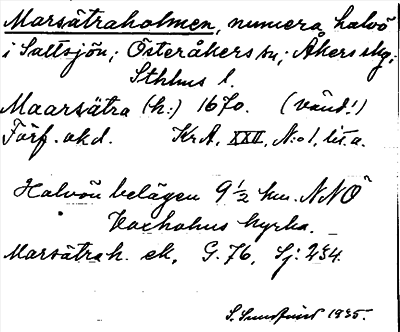 Marsätraholmen, numera halvö
i Saltsjön; Österåkers sn; Åkers skg;
Sthlms l.
Maarsätra (h:) 1670. (vänd!)
Förf. okd. KrA. XXII, N:o 1, lit. a.
Halvön belägen 9 ½ km. NNÖ
Vaxholms kyrka.
Marsätrah. ek, G. 76, Sj: 234.
S. Sundquist 1935.